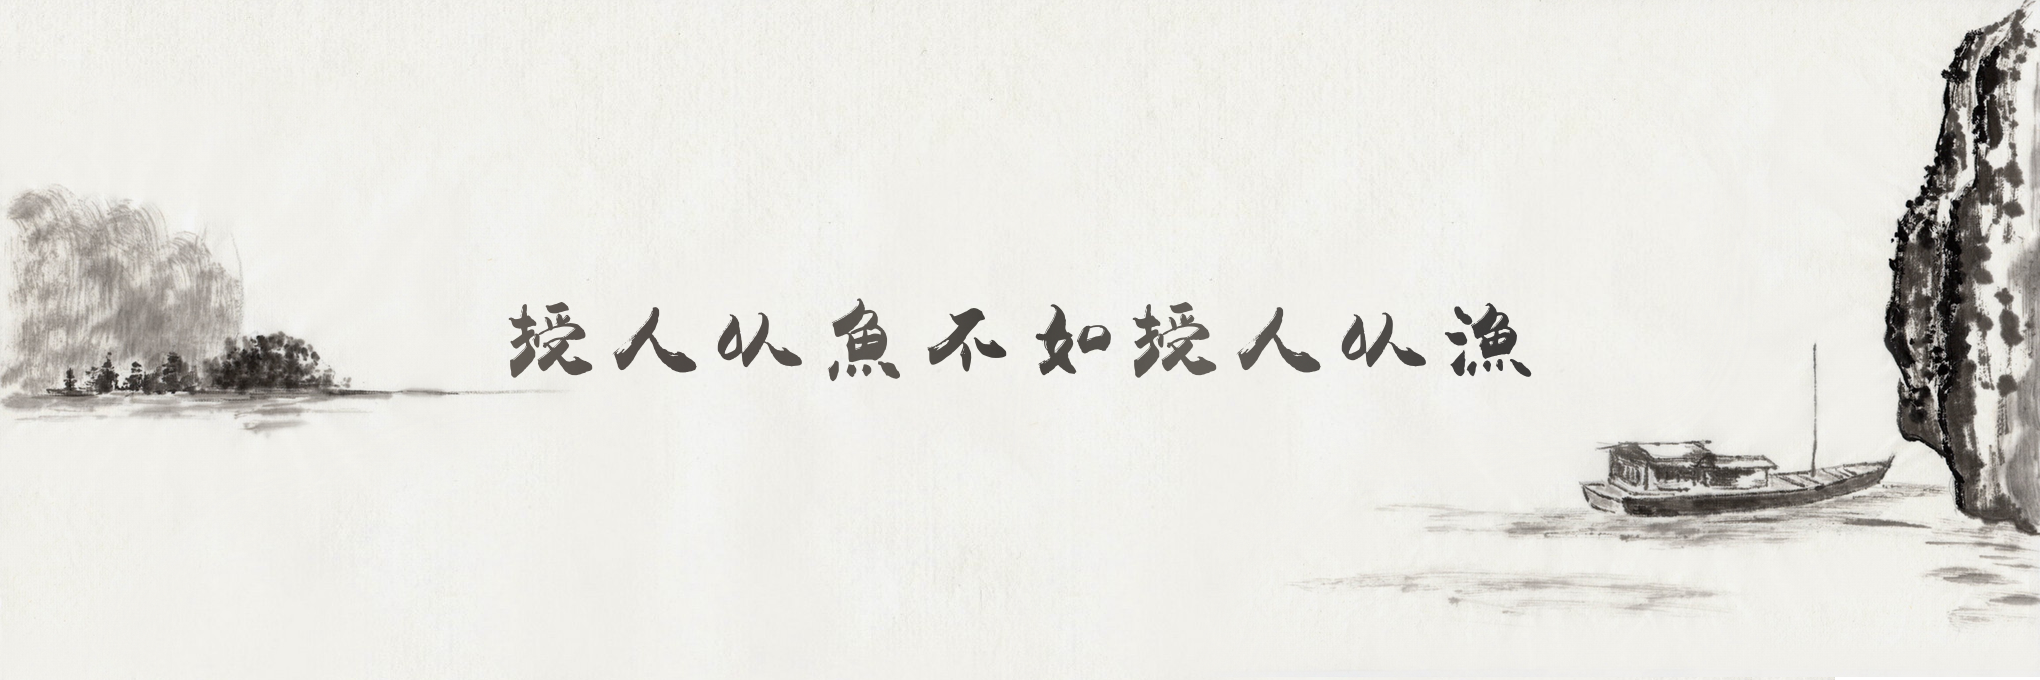 授人以魚不如授人以漁